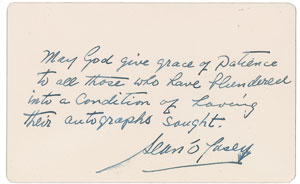 May God give grace of Patience
to all those who have blundered
into a condition of having
their autographs sought.
Sean O'Casey